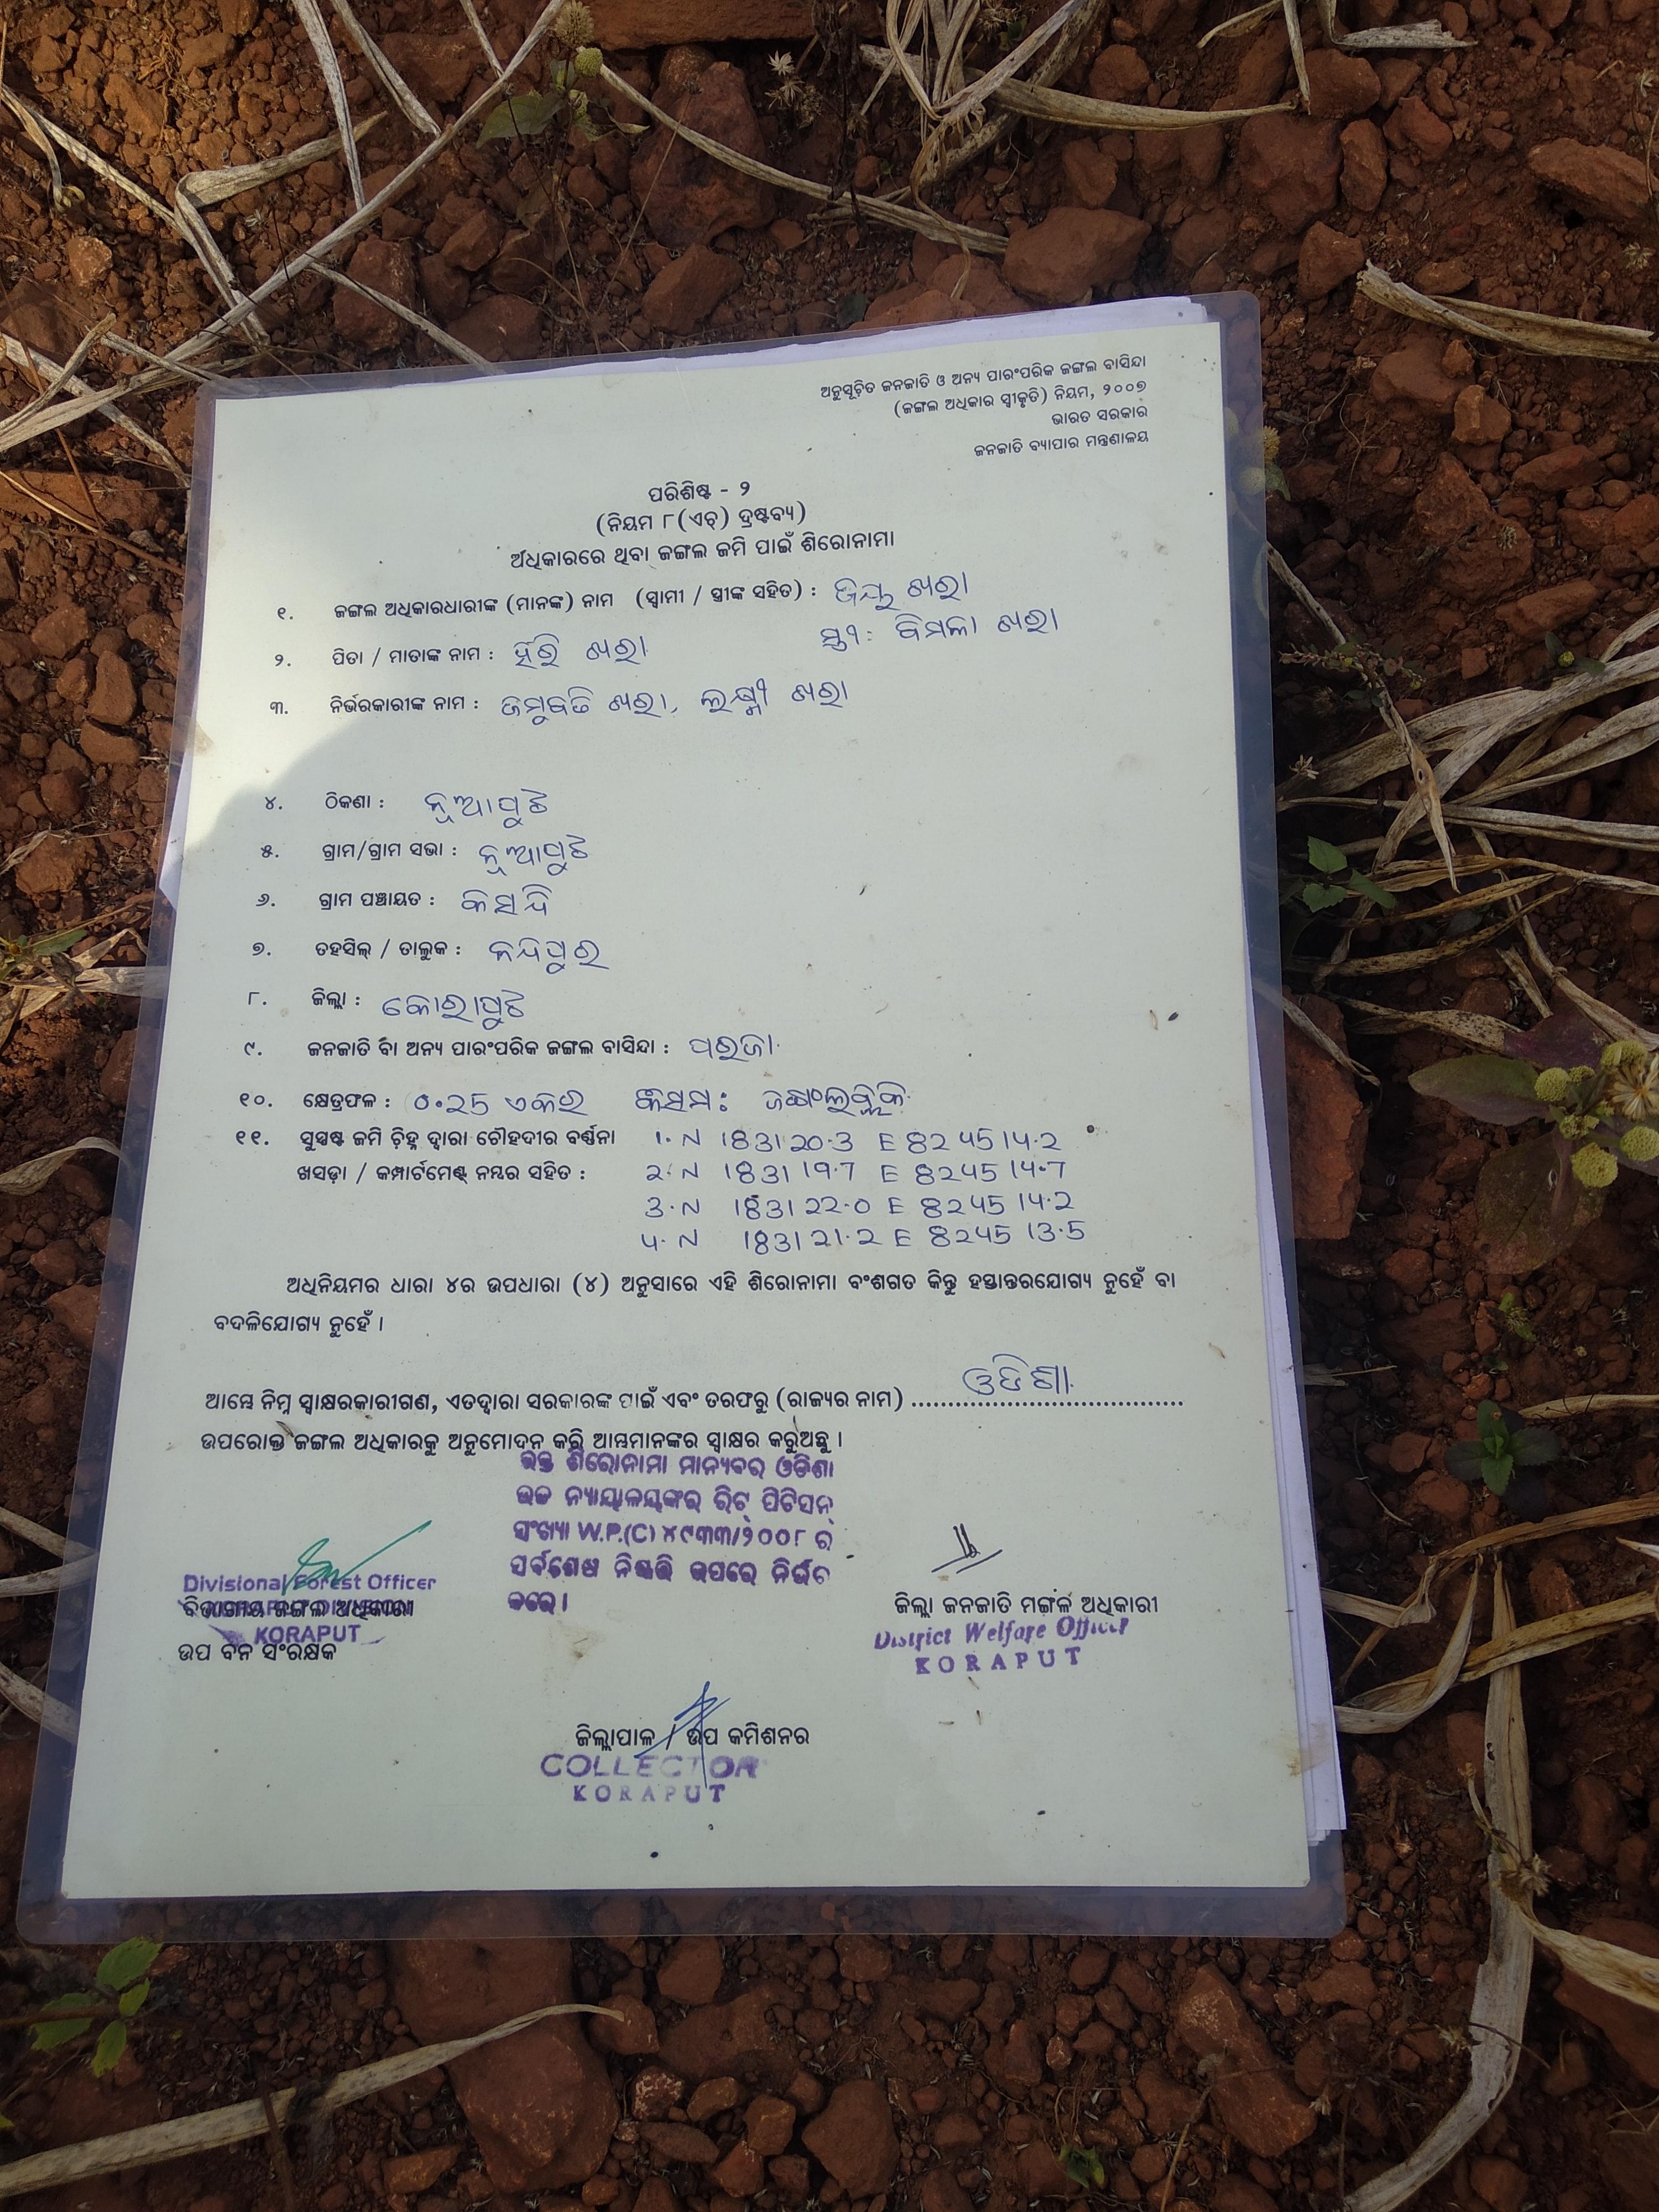 ଅନୁସୂଚିତ ଜନଜାତି ଓ ଅନ୍ୟ ପାରଂପରିକ ଜଙ୍ଗଲ ବାସିନ୍ଦା
(ଜଙ୍ଗଲ ଅଧିକାର ସ୍ୱୀକୃତି) ନିୟମ, ୨୦୦୭
ଭାରତ ସରକାର
ଜନଜାତି ବ୍ୟାପାର ମନ୍ତ୍ରଣାଳୟ
ପରିଶିଷ୍ଟ - ୨
(ନିୟମ ୮(ଏଚ୍) ଦ୍ରଷ୍ଟବ୍ୟ)
ଅଧିକାରରେ ଥିବା ଜଙ୍ଗଲ ଜମି ପାଇଁ ଶିରୋନାମା
୧. ଜଙ୍ଗଲ ଅଧିକାରଧାରୀଙ୍କ (ମାନଙ୍କ) ନାମ (ସ୍ୱାମୀ / ସ୍ତ୍ରୀଙ୍କ ସହିତ) : ଜୟ ଖରା
ସ୍ତ୍ରୀ: ବିମଳା ଖରା
୨. ପିତା / ମାତାଙ୍କ ନାମ : ହରି ଖରା
୩. ନିର୍ଭରକାରୀଙ୍କ ନାମ : ଜମୁବତି ଖରା, ଲକ୍ଷ୍ମୀ ଖରା
୪. ଠିକଣା : ନୂଆପୁଟ
୫. ଗ୍ରାମ/ଗ୍ରାମ ସଭା : ନୂଆପୁଟ
୬. ଗ୍ରାମ ପଞ୍ଚାୟତ : କିସନ୍ଦି
୭. ତହସିଲ୍ / ତାଲୁକ : ନନ୍ଦପୁର
୮. ଜିଲ୍ଲା : କୋରାପୁଟ
୯. ଜନଜାତି ବା ଅନ୍ୟ ପାରଂପରିକ ଜଙ୍ଗଲ ବାସିନ୍ଦା : ପରଜା
୧୦. କ୍ଷେତ୍ରଫଳ : 0.25 ଏକର କିସମ :
୧୧. ସୁସ୍ପଷ୍ଟ ଜମି ଚିହ୍ନ ଦ୍ୱାରା ଚୌହଦୀର ବର୍ଣ୍ଣନା 1. N 183120.3 E 824514.2
ଖସଡ଼ା / କମ୍ପାର୍ଟମେଣ୍ଟ୍ ନମ୍ବର ସହିତ : 2. N 183119.7 E 824514.7
3. N 183122.0 E 824514.2
4. N 183121.2 E 824513.5
ଅଧିନିୟମର ଧାରା ୪ର ଉପଧାରା (୪) ଅନୁସାରେ ଏହି ଶିରୋନାମା ବଂଶଗତ କିନ୍ତୁ ହସ୍ତାନ୍ତରଯୋଗ୍ୟ ନୁହେଁ ବା
ବଦଳିଯୋଗ୍ୟ ନୁହେଁ ।
ଆମ୍ଭେ ନିମ୍ନ ସ୍ୱାକ୍ଷରକାରୀଗଣ, ଏତଦ୍ୱାରା ସରକାରଙ୍କ ପାଇଁ ଏବଂ ତରଫରୁ (ରାଜ୍ୟର ନାମ) ଓଡିଶା
ଉପରୋକ୍ତ ଜଙ୍ଗଲ ଅଧିକାରକୁ ଅନୁମୋଦନ କରି ଆମ୍ଭମାନଙ୍କର ସ୍ୱାକ୍ଷର କରୁଅଛୁ ।
ଉକ୍ତ ଶିରୋନାମା ମାନ୍ୟବର ଓଡିଶା
ଉଚ୍ଚ ନ୍ୟାୟାଳୟଙ୍କର ରିଟ୍ ପିଟିସନ୍
ସଂଖ୍ୟା W.P.(C) ୪୯୩୩/୨୦୦୮ ର
ସର୍ବଶେଷ ନିଷ୍ପତ୍ତି ଉପରେ ନିର୍ଭର
କରେ ।
Divisional Forest Officer
ବିଭାଗୀୟ ଜଙ୍ଗଲ ଅଧିକାରୀ
KORAPUT
ଉପ ବନ ସଂରକ୍ଷକ
ଜିଲ୍ଲା ଜନଜାତି ମଙ୍ଗଳ ଅଧିକାରୀ
District Welfare Officer
KORAPUT
ଜିଲ୍ଲାପାଳ / ଉପ କମିଶନର
COLLECTOR
KORAPUT